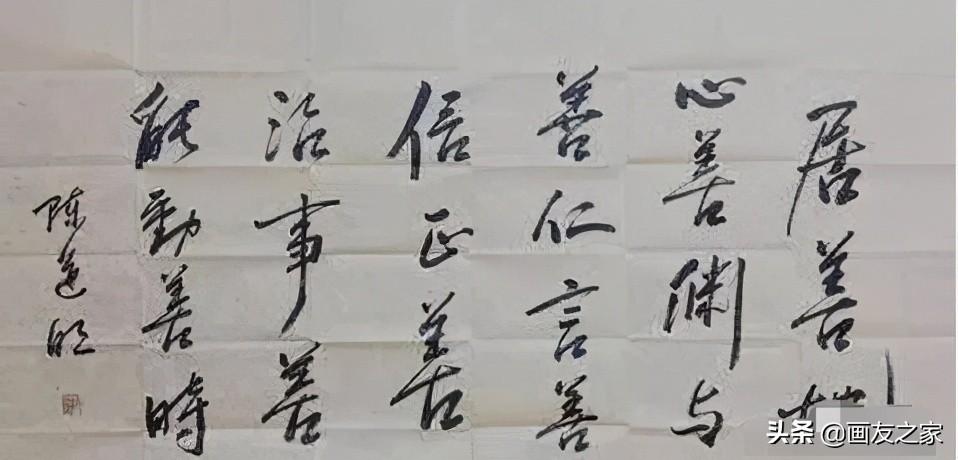 居善地
心善淵与
善仁言善
信正善
治事善
能動善時
陈道明
头条 @画友之家